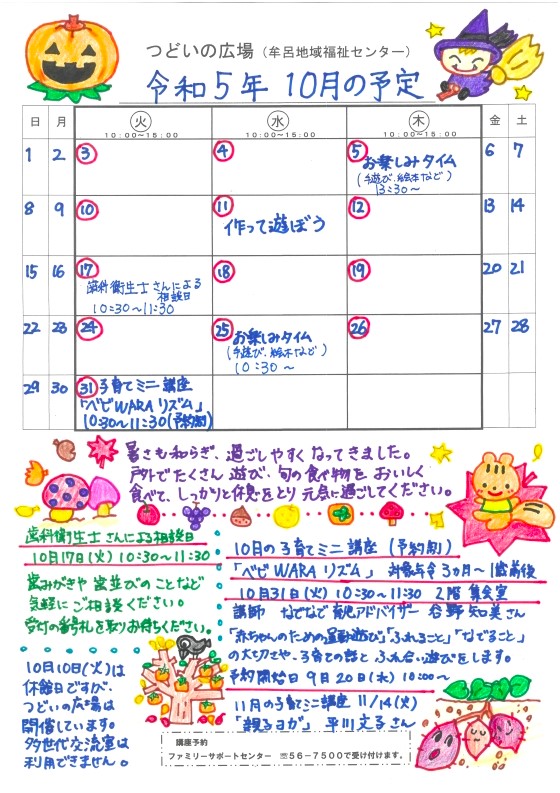 つどいの広場（牟呂地域福祉センター）
令和5年 10月の予定
日 月 火 水 木 金 土
10:00~15:00 10:00~15:00 10:00~15:00
1 2 3 4 5 6 7
お楽しみタイム
(手遊び、絵本など)
13:30~
8 9 10 11 12 13 14
作って遊ぼう
15 16 17 18 19 20 21
歯科衛生士さんによる
相談日
10:30~11:30
22 23 24 25 26 27 28
お楽しみタイム
(手遊び、絵本など)
10:30~
29 30 31 子育てミニ講座
「ベビWARAリズム」
10:30~11:30(予約制)
暑さも和らぎ、過ごしやすくなってきました。
戸外でたくさん遊び、旬の食べ物をおいしく
食べて、しっかりと休息をとり元気に過ごしてください。
歯科衛生士さんによる相談日
10月17日(火)10:30~11:30
歯みがきや歯並びのことなど
気軽にご相談ください。
受付の番号札を取りお待ちください。
10月10日(火)は
休館日ですが、
つどいの広場は
開催しています。
多世代交流室は
利用できません。
10月の子育てミニ講座(予約制)
「ベビWARAリズム」対象月令3カ月~1歳前後
10月31日(火)10:30~11:30 2階集会室
講師 なでなで育児アドバイザー 谷野知美さん
「赤ちゃんのための運動遊び」「ふれること」「なでること」
の大切さや、子育ての話とふれ合い遊びをします。
予約開始日9月20日(水)10:00~
11月の子育てミニ講座 11/14(火)
「親子ヨガ」 平川文子さん
講座予約
ファミリーサポートセンター ☏56-7500で受け付けます。